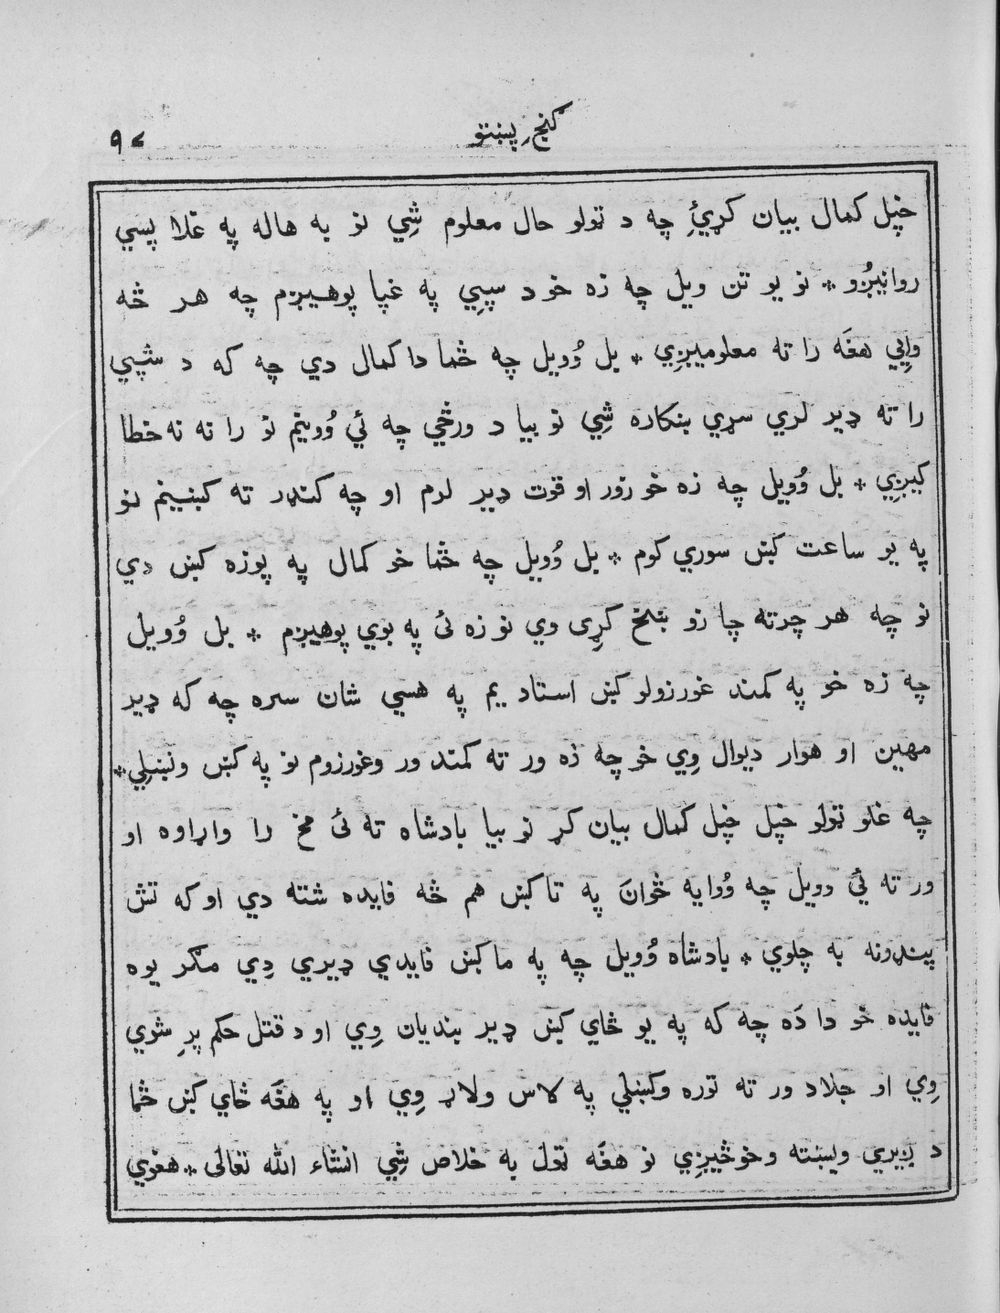 گنج پښتو
۹۷
خپل کمال بیان کړئِ چه د ټولو حال معلوم شِي نو به هاله په غلا پسي
روانیږُو * نو یو تن ویل چه زه خو د سپيِ په غپا پوهیږم چه هر څه
وایِي هغَه را ته معلومیږِي * بل وُویل چه څما دا کمال دي چه که د شپي
را ته ډیر لري سړي ښکاره شِي نو بیا د ورځي چه ئي وُوینم نو را ته نه خطا
کیږِي * بل وُویل چه زه خو زور او قوت ډیر لرم او چه کنډر ته کښینم نو
په یو ساعت کښ سوري کوم * بل وُویل چه څما خو کمال په پوزه کښ دي
نو چه هر چرته چا زو ښخ کړِی وي نو زه ئ په بوي پوهیږم * بل وُویل
چه زه خو په کمند غورزولو کښ استاد یم په هسي شان سره چه که ډیر
مهین او هوار دیوال وِي خو چه زه ور ته کمند ور وغورزوم نو په کښ ونښلِي *
چه غلو ټولو خپل خپل کمال بیان کړ نو بیا بادشاه ته ئ مخ را واړاوه او
ور ته ئي وویل چه وُوایه ځوانَ په تا کښ هم څه فایده شته دي او که تش
پیڼدونه به چلوي * بادشاه وُویل چه په ما کښ فایدي ډیري دِي مګر یوه
فایده خو دا دَه چه که په یو ځاي کښ ډیر بندیان وِي او د قتل حکم پرِ شوي
وِي او جلاد ور ته توره وکښلي په لاس ولاړ وِي او په هغَه ځاي کښ څما
د ږیري ویښته وخوځیږِي نو هغَه ټول به خلاص شِي انشاء الله تعالی * هغوي